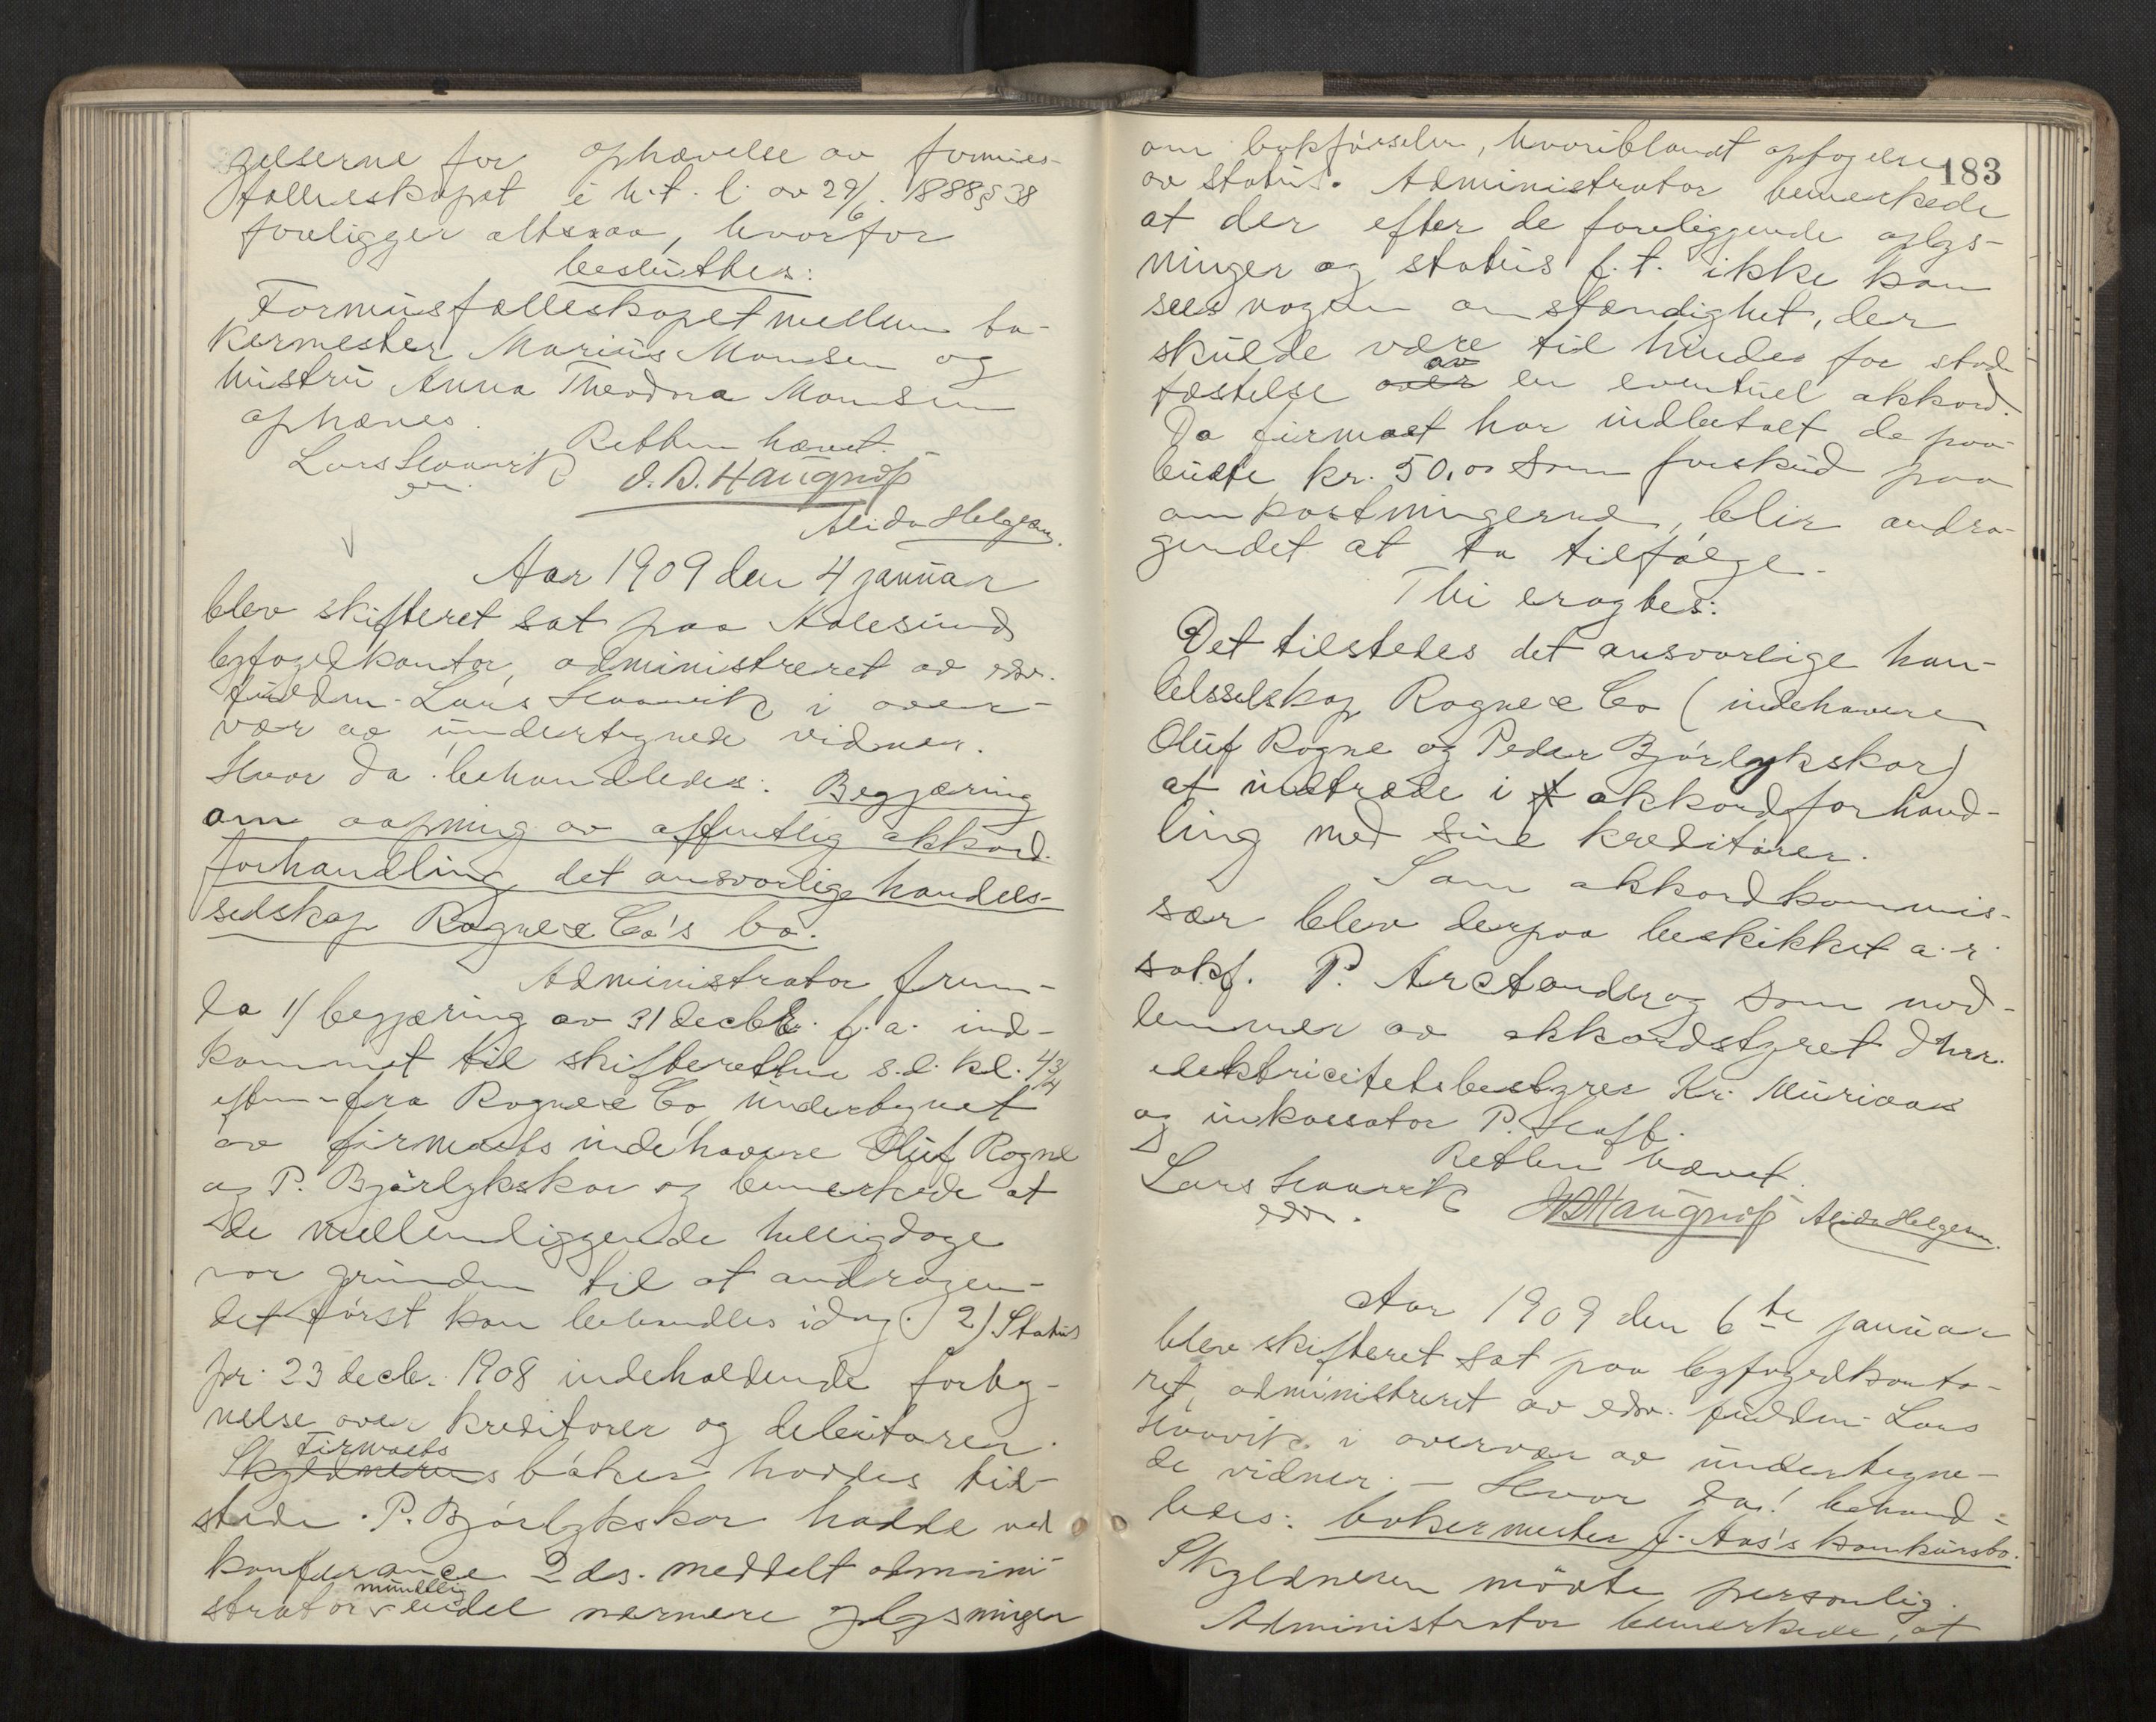 gelserne for ophævelse av formues-
fælleskapet i h.t. l. av 29/6. 1888 § 38
foreligger altsaa, hvorfor
besluttes:
Formuesfælleskapet mellem ba-
kermester Marius Monsen og
hustru Anna Theodora Monsen
ophæves.
Retten hævet.
Lars Haavik J.D. Haugnæss
edv.
Alida Helgesen.
Aar 1909 den 4 januar
blev skifteret sat paa Aalesunds
byfogedkontor, administreret av edv.
fuldm. Lars Haavik i over-
vær av undertegnede vidner.
Hvor da! behandledes: Begjæring
om aapning av offentlig akkord-
forhandling det ansvarlige handels-
selskap Rogne & Co's bo.
Administrator frem-
la 1) begjæring av 31 decbr. f.a. ind-
kommet til skifteretten s.d. kl. 4 3/4
efterm. fra Rogne & Co, undertegnet
av firmaets indehavere Oluf Rogne
og P. Bjørlykskar og bemerkede at
de mellemliggende helligdage
var grunden til at andragen-
det først kan behandles idag. 2) Status
pr. 23 decb. 1908 indeholdende forteg-
nelse over kreditorer og debitorer.
Firmaets
Skyldnerens bøker havdes til-
stede. P. Bjørlykskar hadde ved
konferance 2 ds. meddelt admini-
mundtlig
strator endel nærmere oplysninger
183
om bokførselen, hvoriblandt optagelse
av status. Administrator bemerkede
at der efter de foreliggende oplys-
ninger og status f.t. ikke kan
sees nogen omstændighet, der
skulde være til hinder for stad-
av
fæstelse over en eventuel akkord.
Da firmaet har indbetalt de paa-
budte kr. 50,00 som forskud paa
omkostningerne, blir andra-
gendet at ta tilfølge.
Thi eragtes:
Det tilstedes det ansvarlige han-
delsselskap Rogne & Co (indehavere
Oluf Rogne og Peder Bjørlykskar)
at indtræde i akkordforhand-
ling med sine kreditorer.
Som akkordkommis-
sær blev derpaa beskikket o.r.
sakf. P. Arctander og som med-
lemmer av akkordstyret d'hrr.
elektricitetsbestyrer Kr. Muriaas
og inkassator P. Hoff.
Retten hævet.
Lars Haavik JD Haugnæss Alida Helgesen.
edv.
Aar 1909 den 6te januar
blev skifteret sat paa byfogedkonto-
ret, administreret av edv. fuldm. Lars
Haavik i overvær av undertegne-
de vidner. – Hvor da! behand-
ledes: bakermester J. Aas's konkursbo.
Skyldneren møtte personlig.
Administrator bemerkede, at